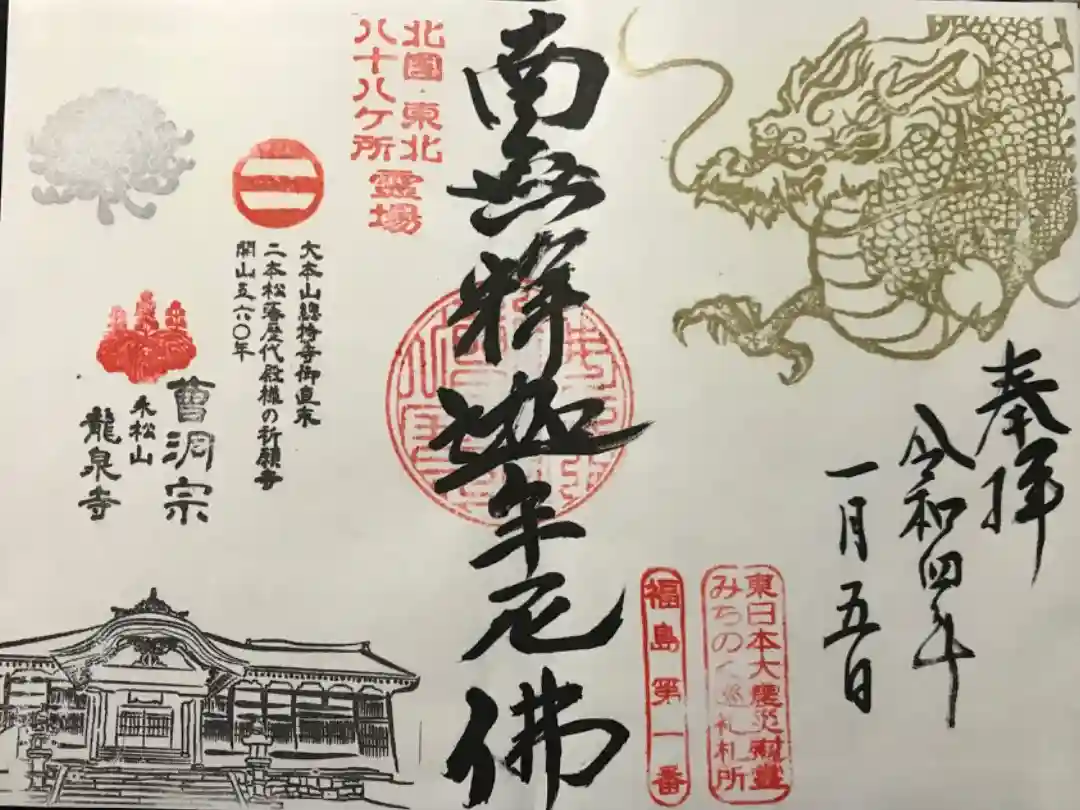 奉拝
令和四年
一月五日
東日本大震災慰霊
みちのく巡礼札所
福島第一番
南無釋迦牟尼佛
北國・東北
八十八ケ所霊場
大本山總持寺御直末
二本松藩歴代殿様の祈願寺
開山五六〇年
曹洞宗
永松山
龍泉寺